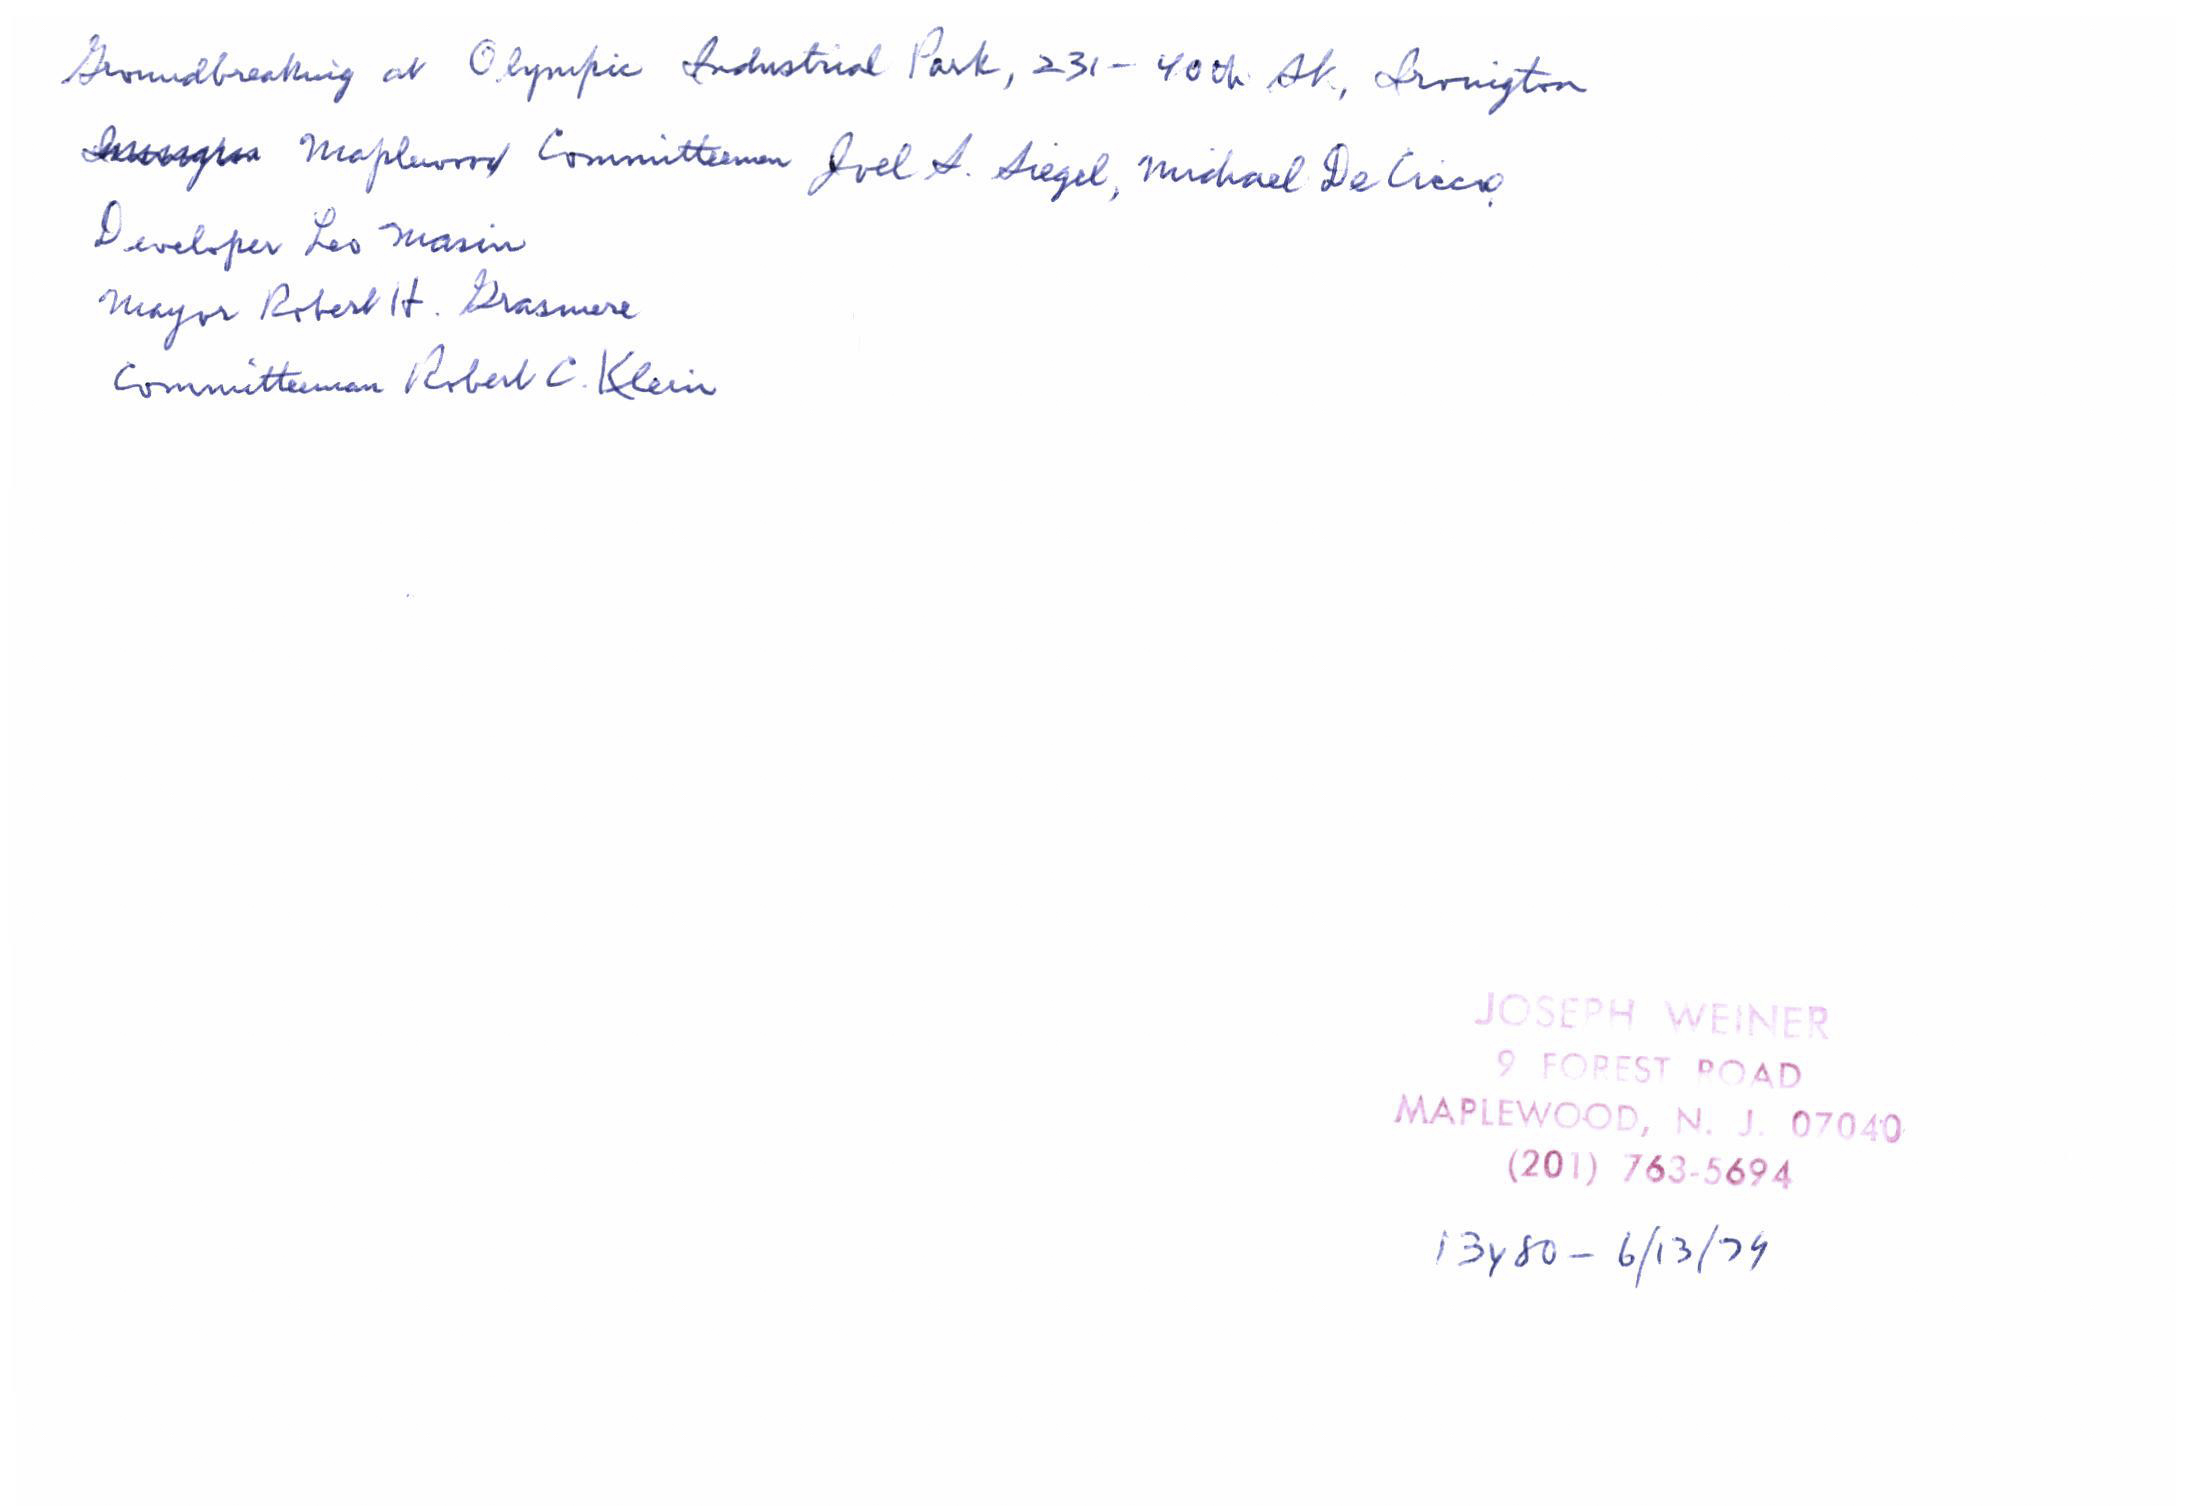 Groundbreaking at Olympic Industrial Park, 231 - 40th St., Irvington
Maplewood Committeeman Joel S. Siegel, Michael De Cicco,
Developer Leo Masin
Mayor Robert H. Grasmere
Committeeman Robert C. Klein
JOSEPH WEINER
9 FOREST ROAD
MAPLEWOOD, N. J. 07040
(201) 763-5694
13480 - 6/13/79